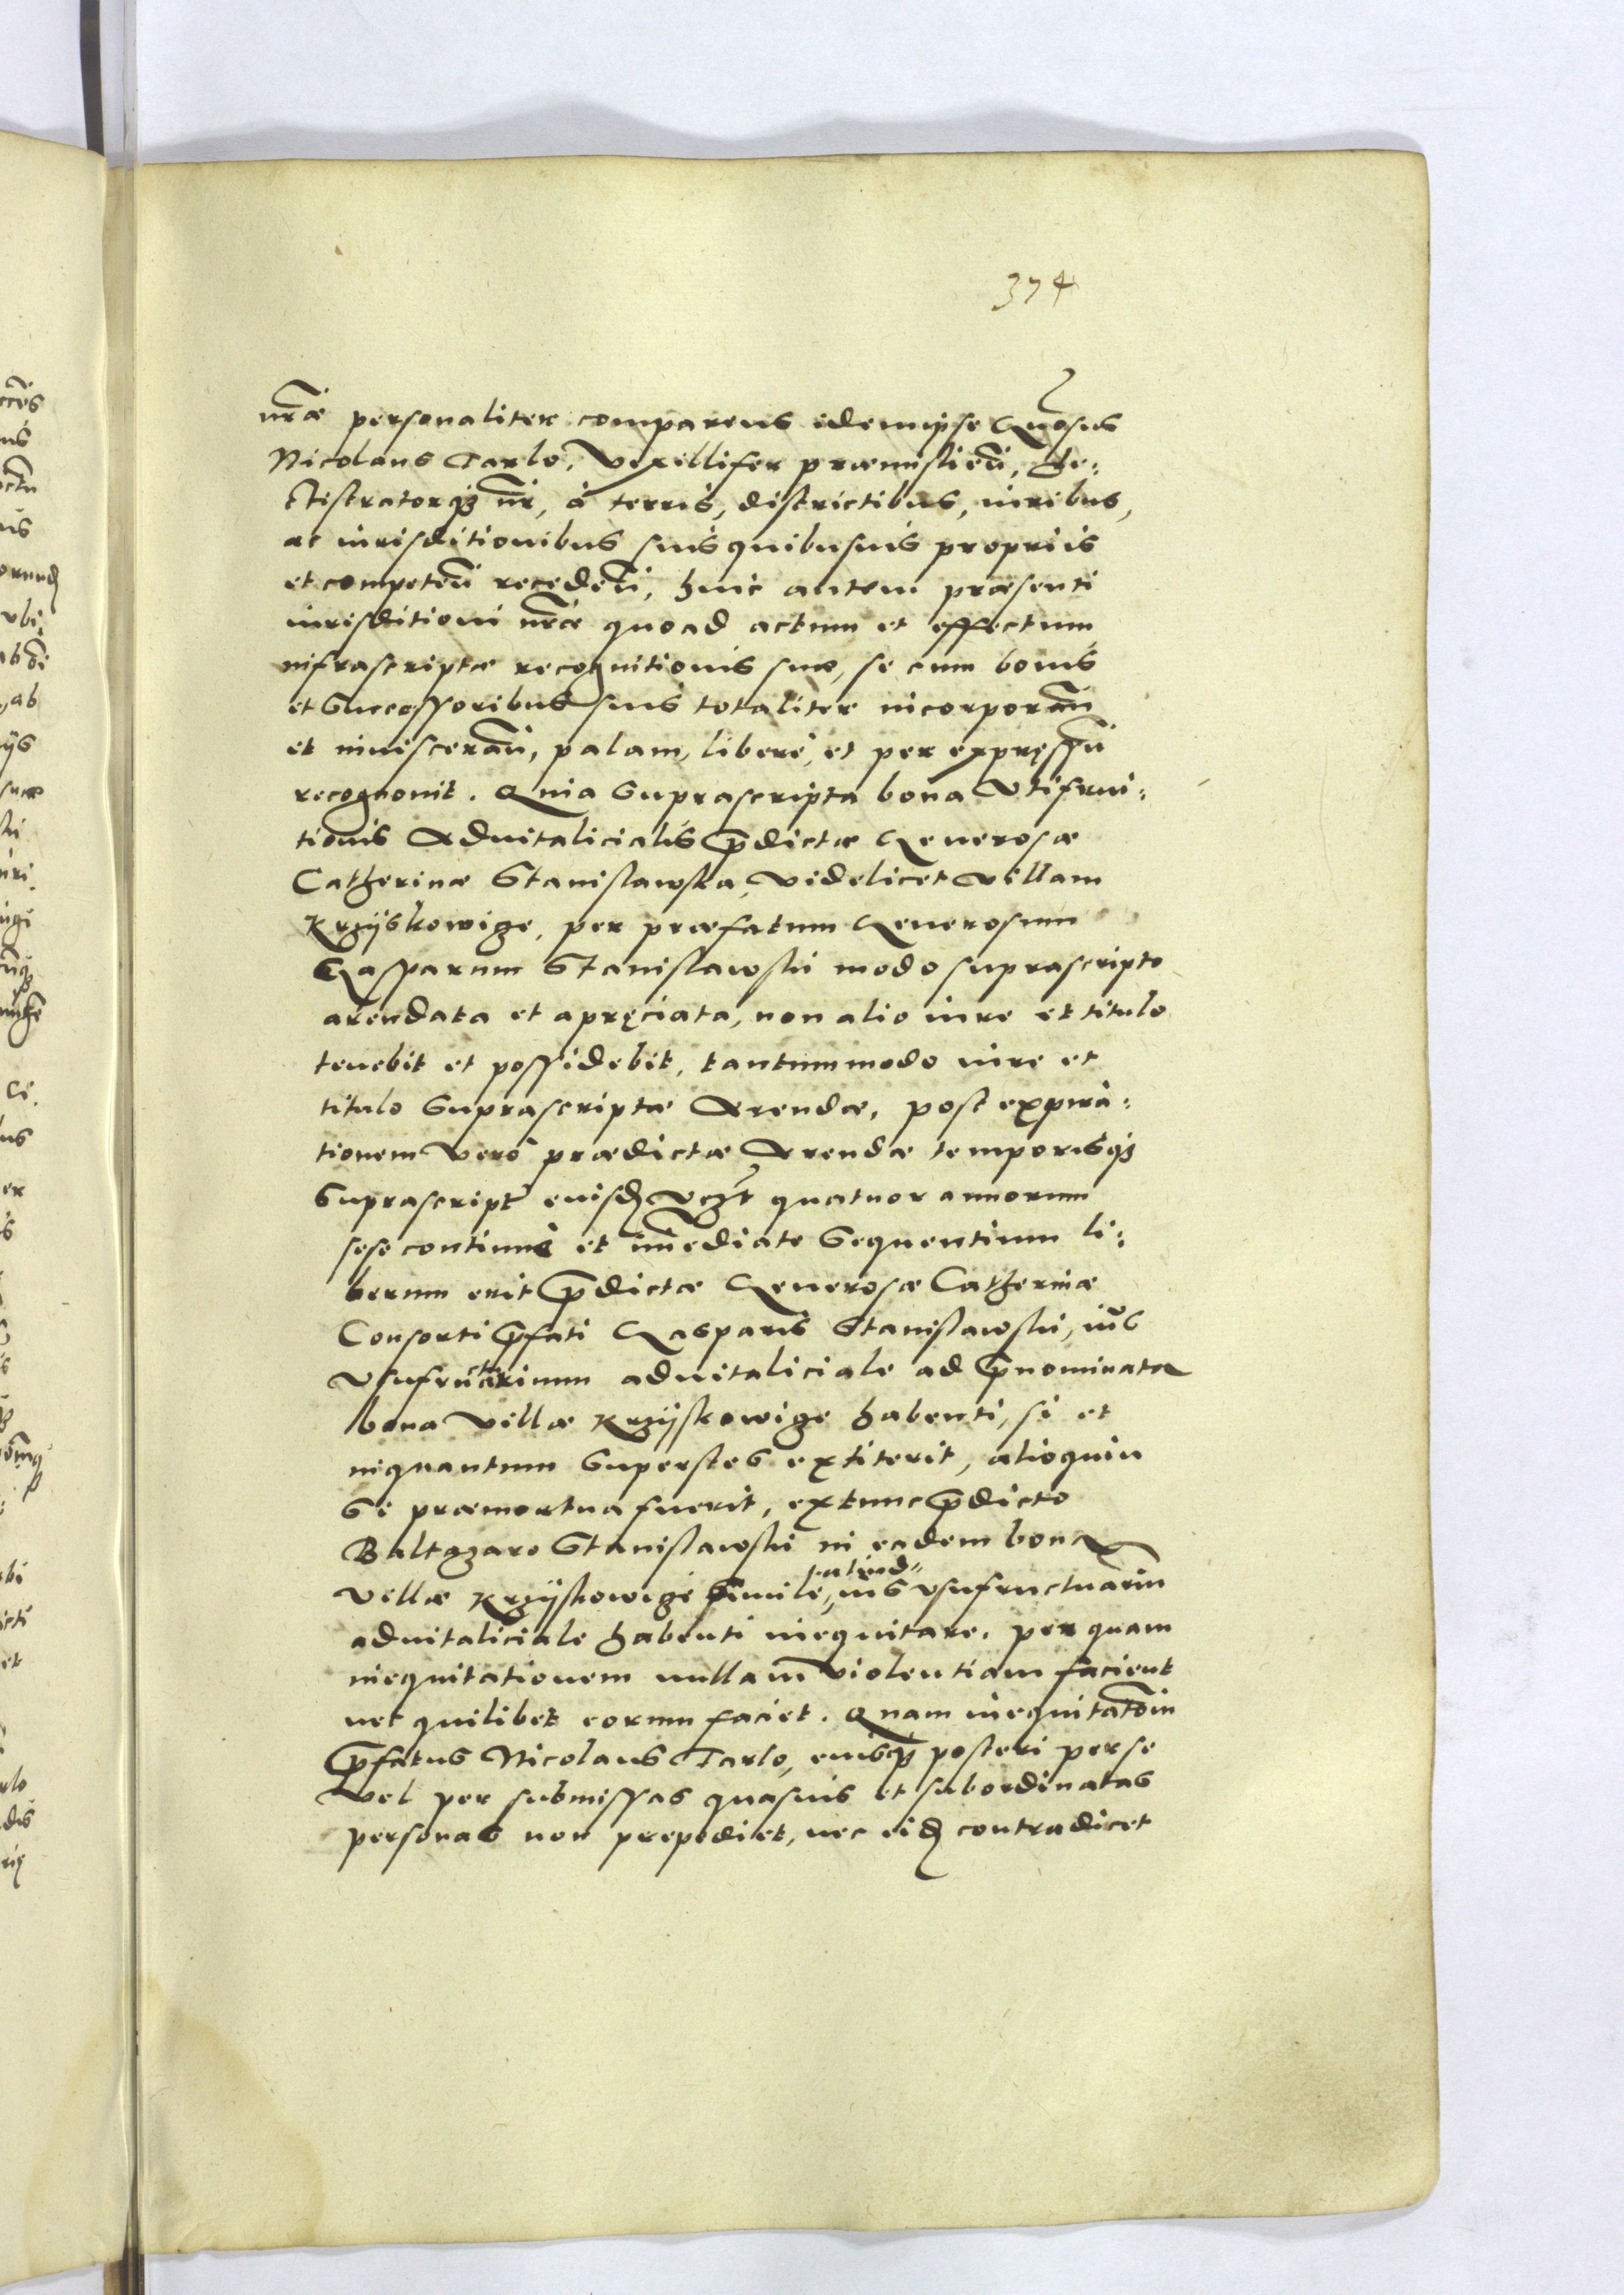 374
nr̃æ personaliter comparens idem ipse Gn̄osus
Nicolaus Tarlo, Vexillifer præmislien̄, Re:
gistratorqȝ nr̄, à terris, districtibus, iuribus,
ac iurisditionibus suis quibusuis propriis
et competen̄ receden̄, huic autem præsenti
iurisditioni nr̃æ quoad actum et effectum
infrascriptæ recognitionis suæ, se cum bonis
et Successoribus suis totaliter incorporan̄
et inuisceran̄, palam, liberè, et per expręssu̅
recognouit. Quia Suprascripta bona Vtifrui:
tionis Aduitalicialis p̄dictæ Generosæ
Catherinæ Stanislawska, videlicet villam
Krzijskowicze, per præfatum Generosum
Gasparum Stanislawski modo suprascripto
arendata et apręciata, non alio iure et titulo
tenebit et possidebit, tantummodo iure et
titulo Suprascriptæ Arendæ, post expira:
tionem verò prædictæ Arendæ temporisqȝ
Suprascript eiusd vczt quatuor annorum
sese continuè et im̄ediate Sequentium li:
berum erit p̄dictæ Generosæ Catherinæ
Consorti p̄fati Gasparis Stanislawski, ius
vsufructuarium aduitaliciale ad p̄nominata
bona villæ Krzijskowicze habenti, si et
inquantum Superstes extiterit, alioquin
Si præmortua fuerit, extunc p̄dicto
Baltazaro Stanislawski in eadem bona
villæ Krzijskowicze simile, ius vsufructuariu̅
aduitaliciale habenti inequitare. per quam
inequitationem nullam violentiam facient
nec quilibet eorum faciet. Quam inequitatōm
p̄fatus Nicolaus Tarlo, eiusqȝ posteri per se
vel per submissas quasuis et subordinatas
personas non prepediet, nec eid contradicet